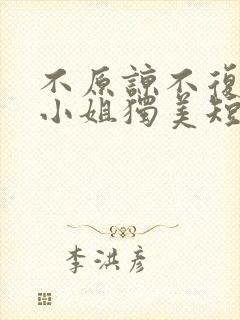 不原諒不復
小姐獨美短
李洪彥